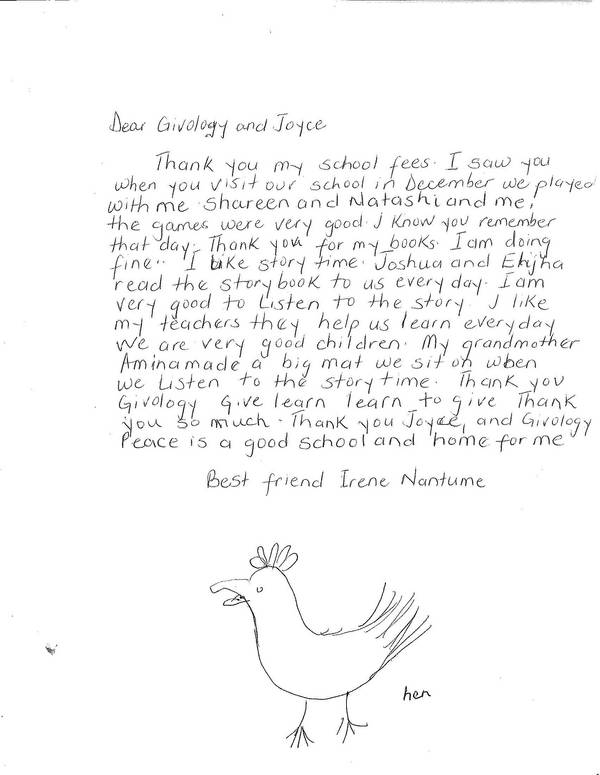 Dear Givology and Joyce
Thank you my school fees. I saw you
when you visit our school in December we played
with me Shareen and Natashi and me,
the games were very good. I know you remember
that day. Thank you for my books. I am doing
fine.. I like story time. Joshua and
read the storybook to us every day. I am
very good to Listen to the story. I like
my teachers they help us learn everyday
We are very good children. My grandmother
Amina made a big mat we sit on when
we Listen to the story time. Thank you
Givology Give learn learn to give Thank
you so much. Thank you Joyce, and Givology
Peace is a good school and home for me
Best friend Irene Nantume
hen